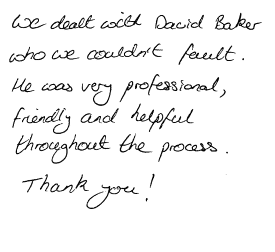 We dealt with David Baker
who we couldn't fault.
He was very professional,
friendly and helpful
throughout the process.
Thank you!